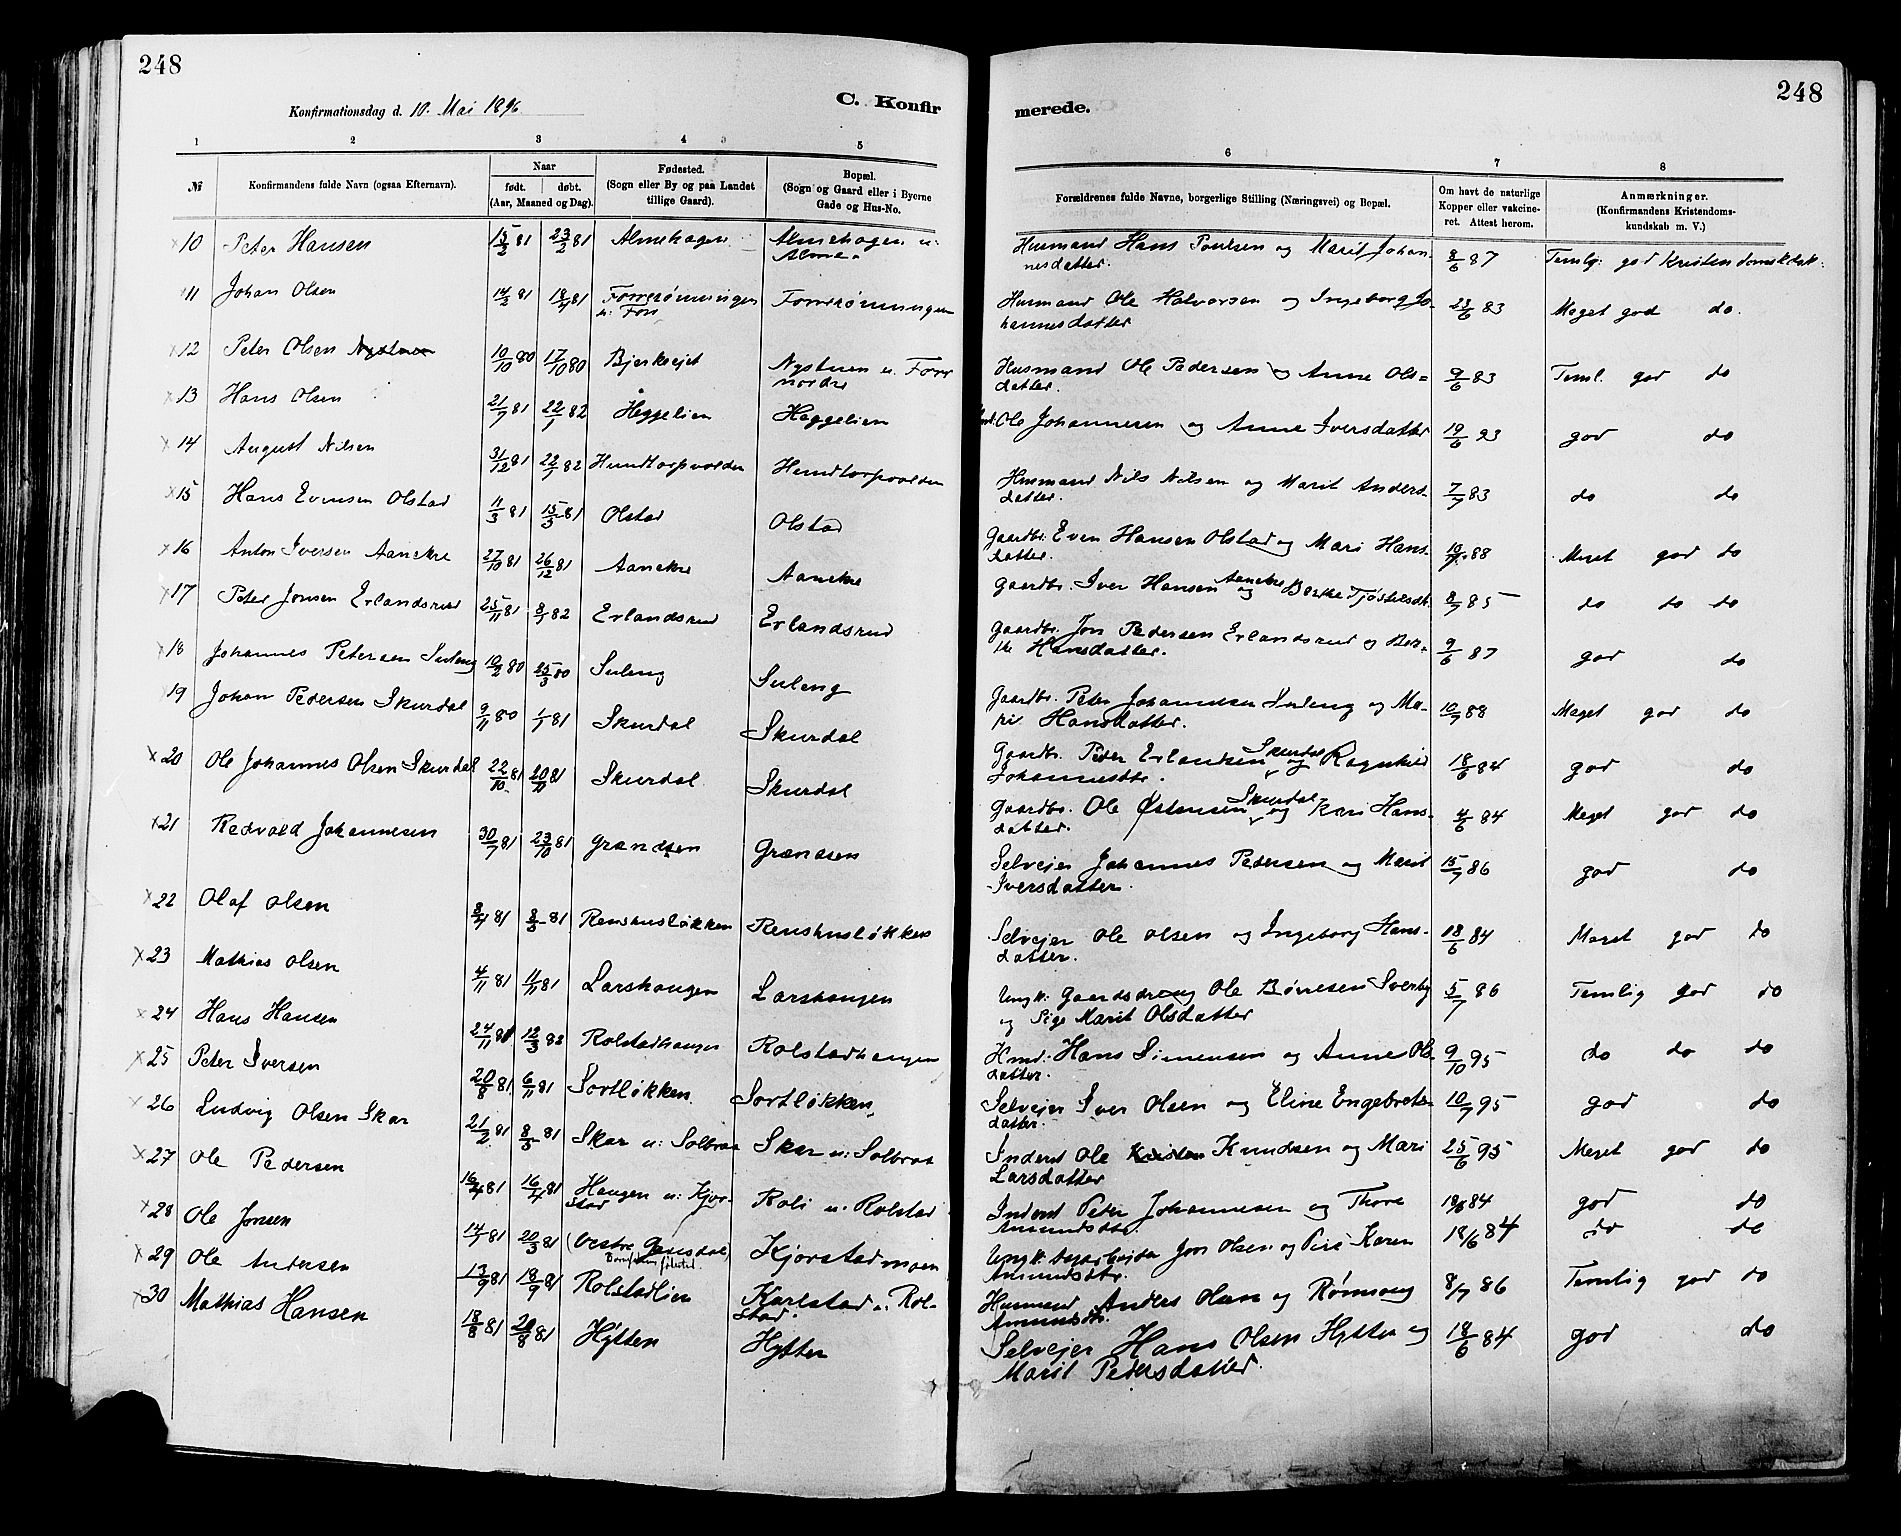 248
248
Konfirmationsdag d. 10. Mai 1896
C. Konfirmerede.
1 2 3 4 5 6 7 8
№ Konfirmandens fulde Navn (ogsaa Efternavn). Naar født. døbt. (Aar, Maaned og Dag). Fødested. (Sogn eller By og paa Landet tillige Gaard). Bopæl. (Sogn og Gaard eller i Byerne Gade og Hus-No. Forældrenes fulde Navne, borgerlige Stilling (Næringsvei) og Bopæl. Om havt de naturlige Kopper eller vakcineret. Attest herom. Anmærkninger. (Konfirmandens Kristendomskundskab m. V.)
10 Peter Hansen 15/2 81 23/2 81 Almehagen Almehagen u: Alme Husmand Hans Poulsen og Marit Johannesdatter. 8/6 87 Temlg: god Kristendomskdsk:
11 Johan Olsen 14/2 81 18/4 81 Forrrønningen u: Forr Forrrønningen Husmand Ole Halvorsen og Ingeborg Johannesdatter 23/6 83 Meget god do.
12 Peter Olsen 10/10 80 17/10 80 Bjerkvejet Nystuen u. Forr nordre Husmand Ole Pedersen og Anne Olsdatter. 9/6 83 Teml. god do
13 Hans Olsen 21/7 81 22/1 82 Heggelien Heggelien Ole Johannesen og Anne Iversdatter 19/6 93 god do
14 August Nilsen 31/12 81 22/1 82 Hundtorpvolden Hundtorpvolden Husmand Nils Nilsen og Marit Andersdatter. 7/7 83 do do
15 Hans Evensen Olstad 11/3 81 15/3 81 Olstad Olstad Gaardbr. Even Hansen Olstad og Mari Hansdatter. 88 Meget god do
16 Anton Iversen Aanekre 27/10 81 26/12 81 Aanekre Aanekre Gaardbr. Iver Hansen Aanekre og Berthe Tjøstelsdt. 8/7 85 do do do
17 Peter Jonsen Erlandsrud 25/11 81 8/1 82 Erlandsrud Erlandsrud Gaardbr. Jon Pedersen Erlandsrud og Berthe Hansdatter. 9/6 87 god do
18 Johannes Petersen Suleng 10/2 80 25/3 80 Suleng Suleng Gaardbr. Peter Johannesen Suleng og Marit Hansdatter. 10/7 88 Meget god do
19 Johan Pedersen Skurdal 9/11 80 1/1 81 Skurdal Skurdal Gaardbr. Peder Erlandsen Skurdal og Ragnhild Johannesdtr. 18/6 84 god do
20 Ole Johannes Olsen Skurdal 22/10 81 20/10 81 Skurdal Skurdal Gaardbr. Ole Østensen Skurdal og Kari Hansdatter. 4/6 84 Meget god do
21 Redvald Johannesen 30/7 81 23/10 81 Grændsen Grændsen Selvejer Johannes Pedersen og Marit Iversdatter. 15/7 86 god do
22 Olaf Olsen 8/4 81 8/5 81 Renshusløkken Renshusløkken Selvejer Ole Olsen og Ingeborg Hansdatter. 18/6 84 Meget god do
23 Mathias Olsen 4/11 81 11/11 81 Larshaugen Larshaugen Ungk: Gaardsdreng Ole Børresen Sverby og Pige Marit Olsdatter 5/7 86 Temlig god do
24 Hans Hansen 24/11 81 12/3 82 Rolstadhaugen Rolstadhaugen Hmd: Hans Simensen og Anne Olsdatter. 9/10 95 do do do
25 Peter Iversen 20/8 81 6/11 81 Sortløkken Sortløkken Selvejer Iver Olsen og Eline Engebretsdatter. 10/7 95 god do
26 Ludvig Olsen Skar 21/2 81 8/5 81 Skar u: Solbraa Skar u: Solbraa Inderst Ole Knudsen og Mari Larsdatter 25/6 95 Meget god do
27 Ole Pedersen 16/4 81 16/4 81 Haugen u: Kjorstad Roli u. Rolstad Inderst Peter Johannesen og Thore Amundsdtr. 19/8 84 god do
28 Ole Jonsen 14/1 81 20/3 81 (Vestre Gausdal) Kjorstadmoen Ungk. Jon Olsen og Pige Karen Amundsdtr. 18/6 84 do do
29 Ole Andersen 13/9 81 18/9 81 Rolstadlien Karlstad u. Rolstad Husmand Anders Olsen og Rønnaug Amundsdtr. 8/7 86 Temlig god do
30 Mathias Hansen 18/8 81 20/8 81 Hytten Hytten Selvejer Hans Olsen Hytten og Marit Pedersdatter. 18/6 84 god do